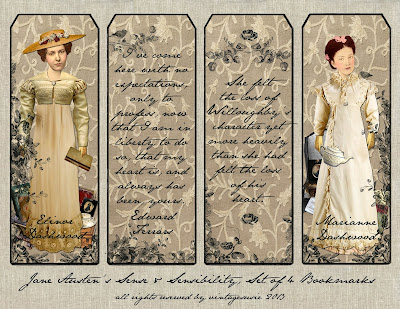 Elinor
Dashwood
I've come
here with no
expectations,
only to
profess, now
that I am in
liberty to do
so, that my
heart is, and
always has
been yours.
Edward
Ferrars
She felt
the loss of
Willoughby's
character yet
more heavily
than she had
felt the loss
of his
heart.
Marianne
Dashwood
Jane Austen's Sense & Sensibility, Set of 4 Bookmarks
all rights reserved by vintagesusie 2013